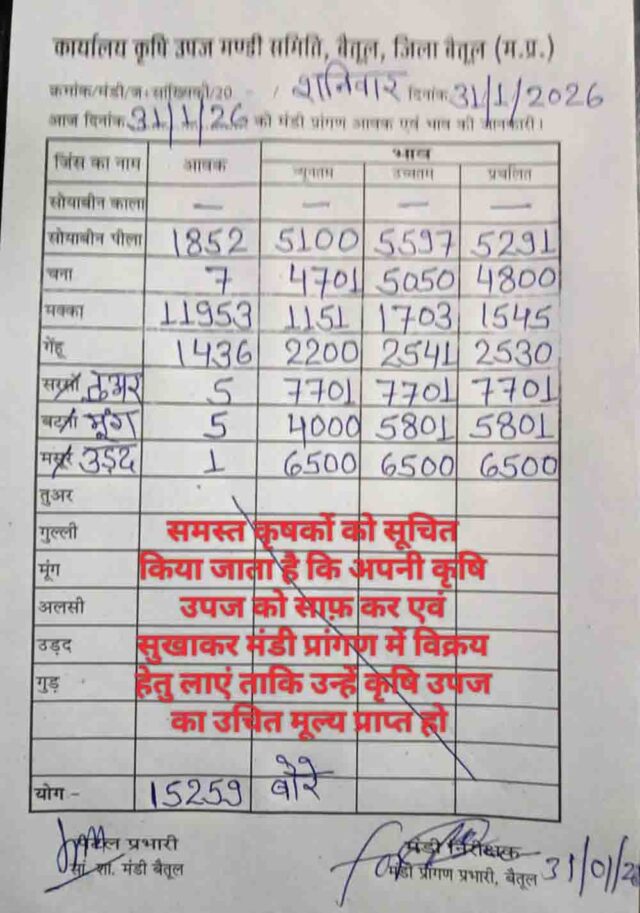 कार्यालय कृषि उपज मण्डी समिति, बैतूल, जिला बैतूल (म.प्र.)
क्रमांक/मंडी/ज. सांख्यिकी/20 / शनिवार दिनांक 31/1/2026
आज दिनांक 31/1/26 को मंडी प्रांगण आवक एवं भाव की जानकारी।
जिंस का नाम आवक भाव
न्यूनतम उच्चतम प्रचलित
सोयाबीन काला — — — —
सोयाबीन पीला 1852 5100 5597 5291
चना 7 4701 5050 4800
मक्का 11953 1151 1703 1545
गेंहू 1436 2200 2541 2530
सरसों तुअर 5 7701 7701 7701
बटरी मूंग 5 4000 5801 5801
मसूर उड़द 1 6500 6500 6500
तुअर
गुल्ली
मूंग
अलसी
उड़द
गुड़
समस्त कृषकों को सूचित
किया जाता है कि अपनी कृषि
उपज को साफ़ कर एवं
सुखाकर मंडी प्रांगण में विक्रय
हेतु लाएं ताकि उन्हें कृषि उपज
का उचित मूल्य प्राप्त हो
योग - 15259 बोरे
प्रभारी
सां. शा. मंडी बैतूल
मंडी निरीक्षक
मंडी प्रांगण प्रभारी, बैतूल 31/01/26